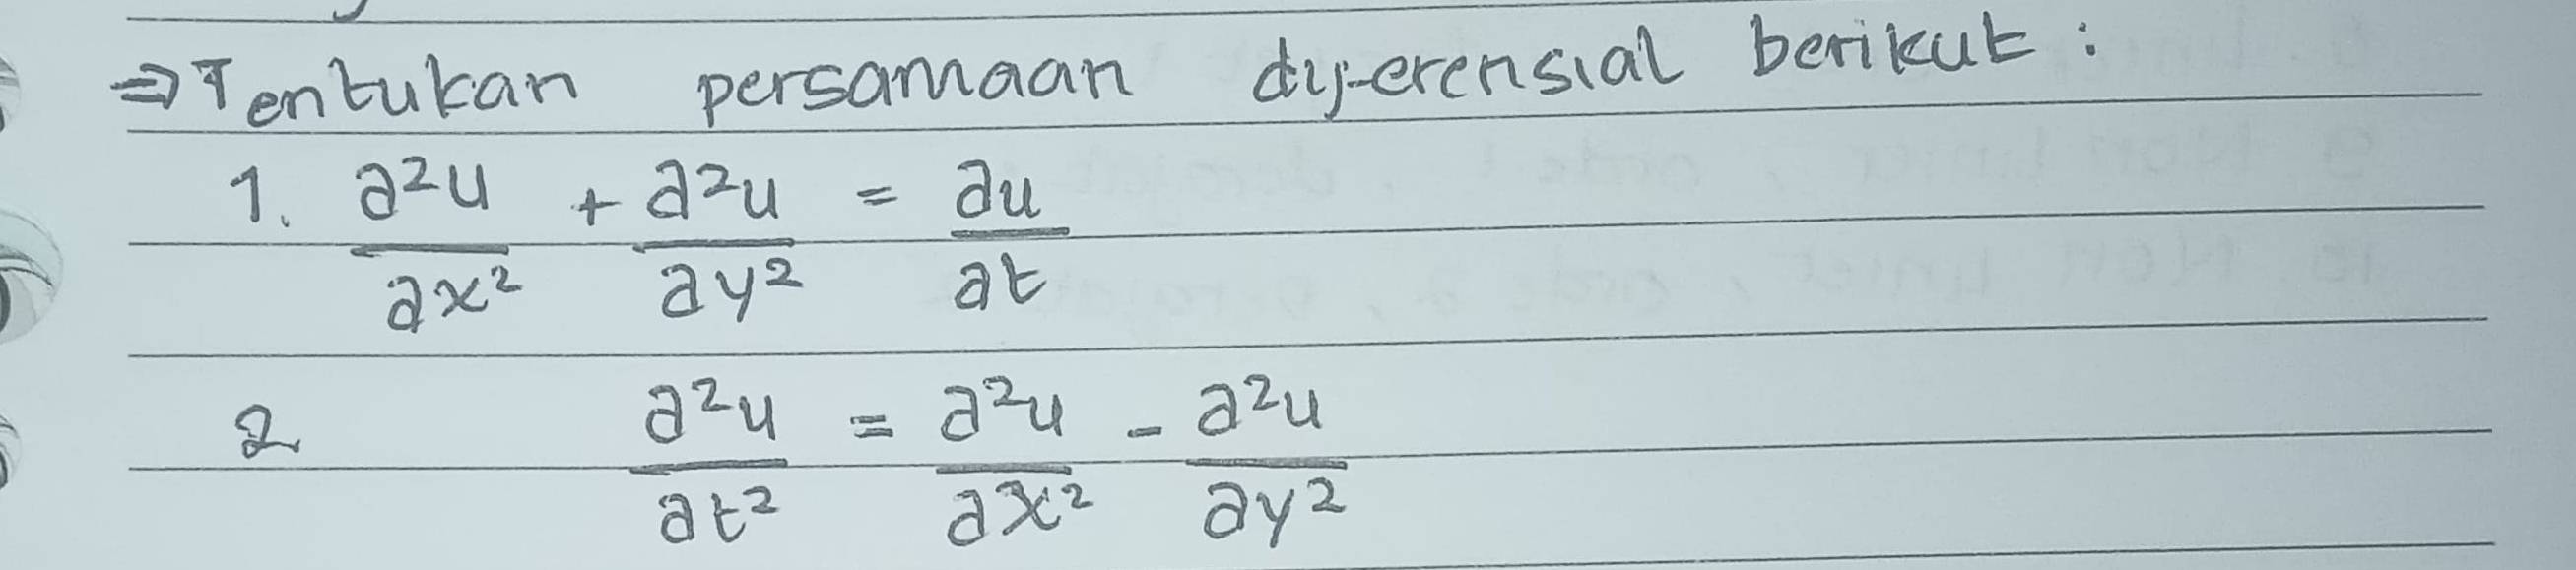 ⇒ Tentukan persamaan diferensial berikut :
1. ∂²u/∂x² + ∂²u/∂y² = ∂u/∂t
2 ∂²u/∂t² = ∂²u/∂x² - ∂²u/∂y²